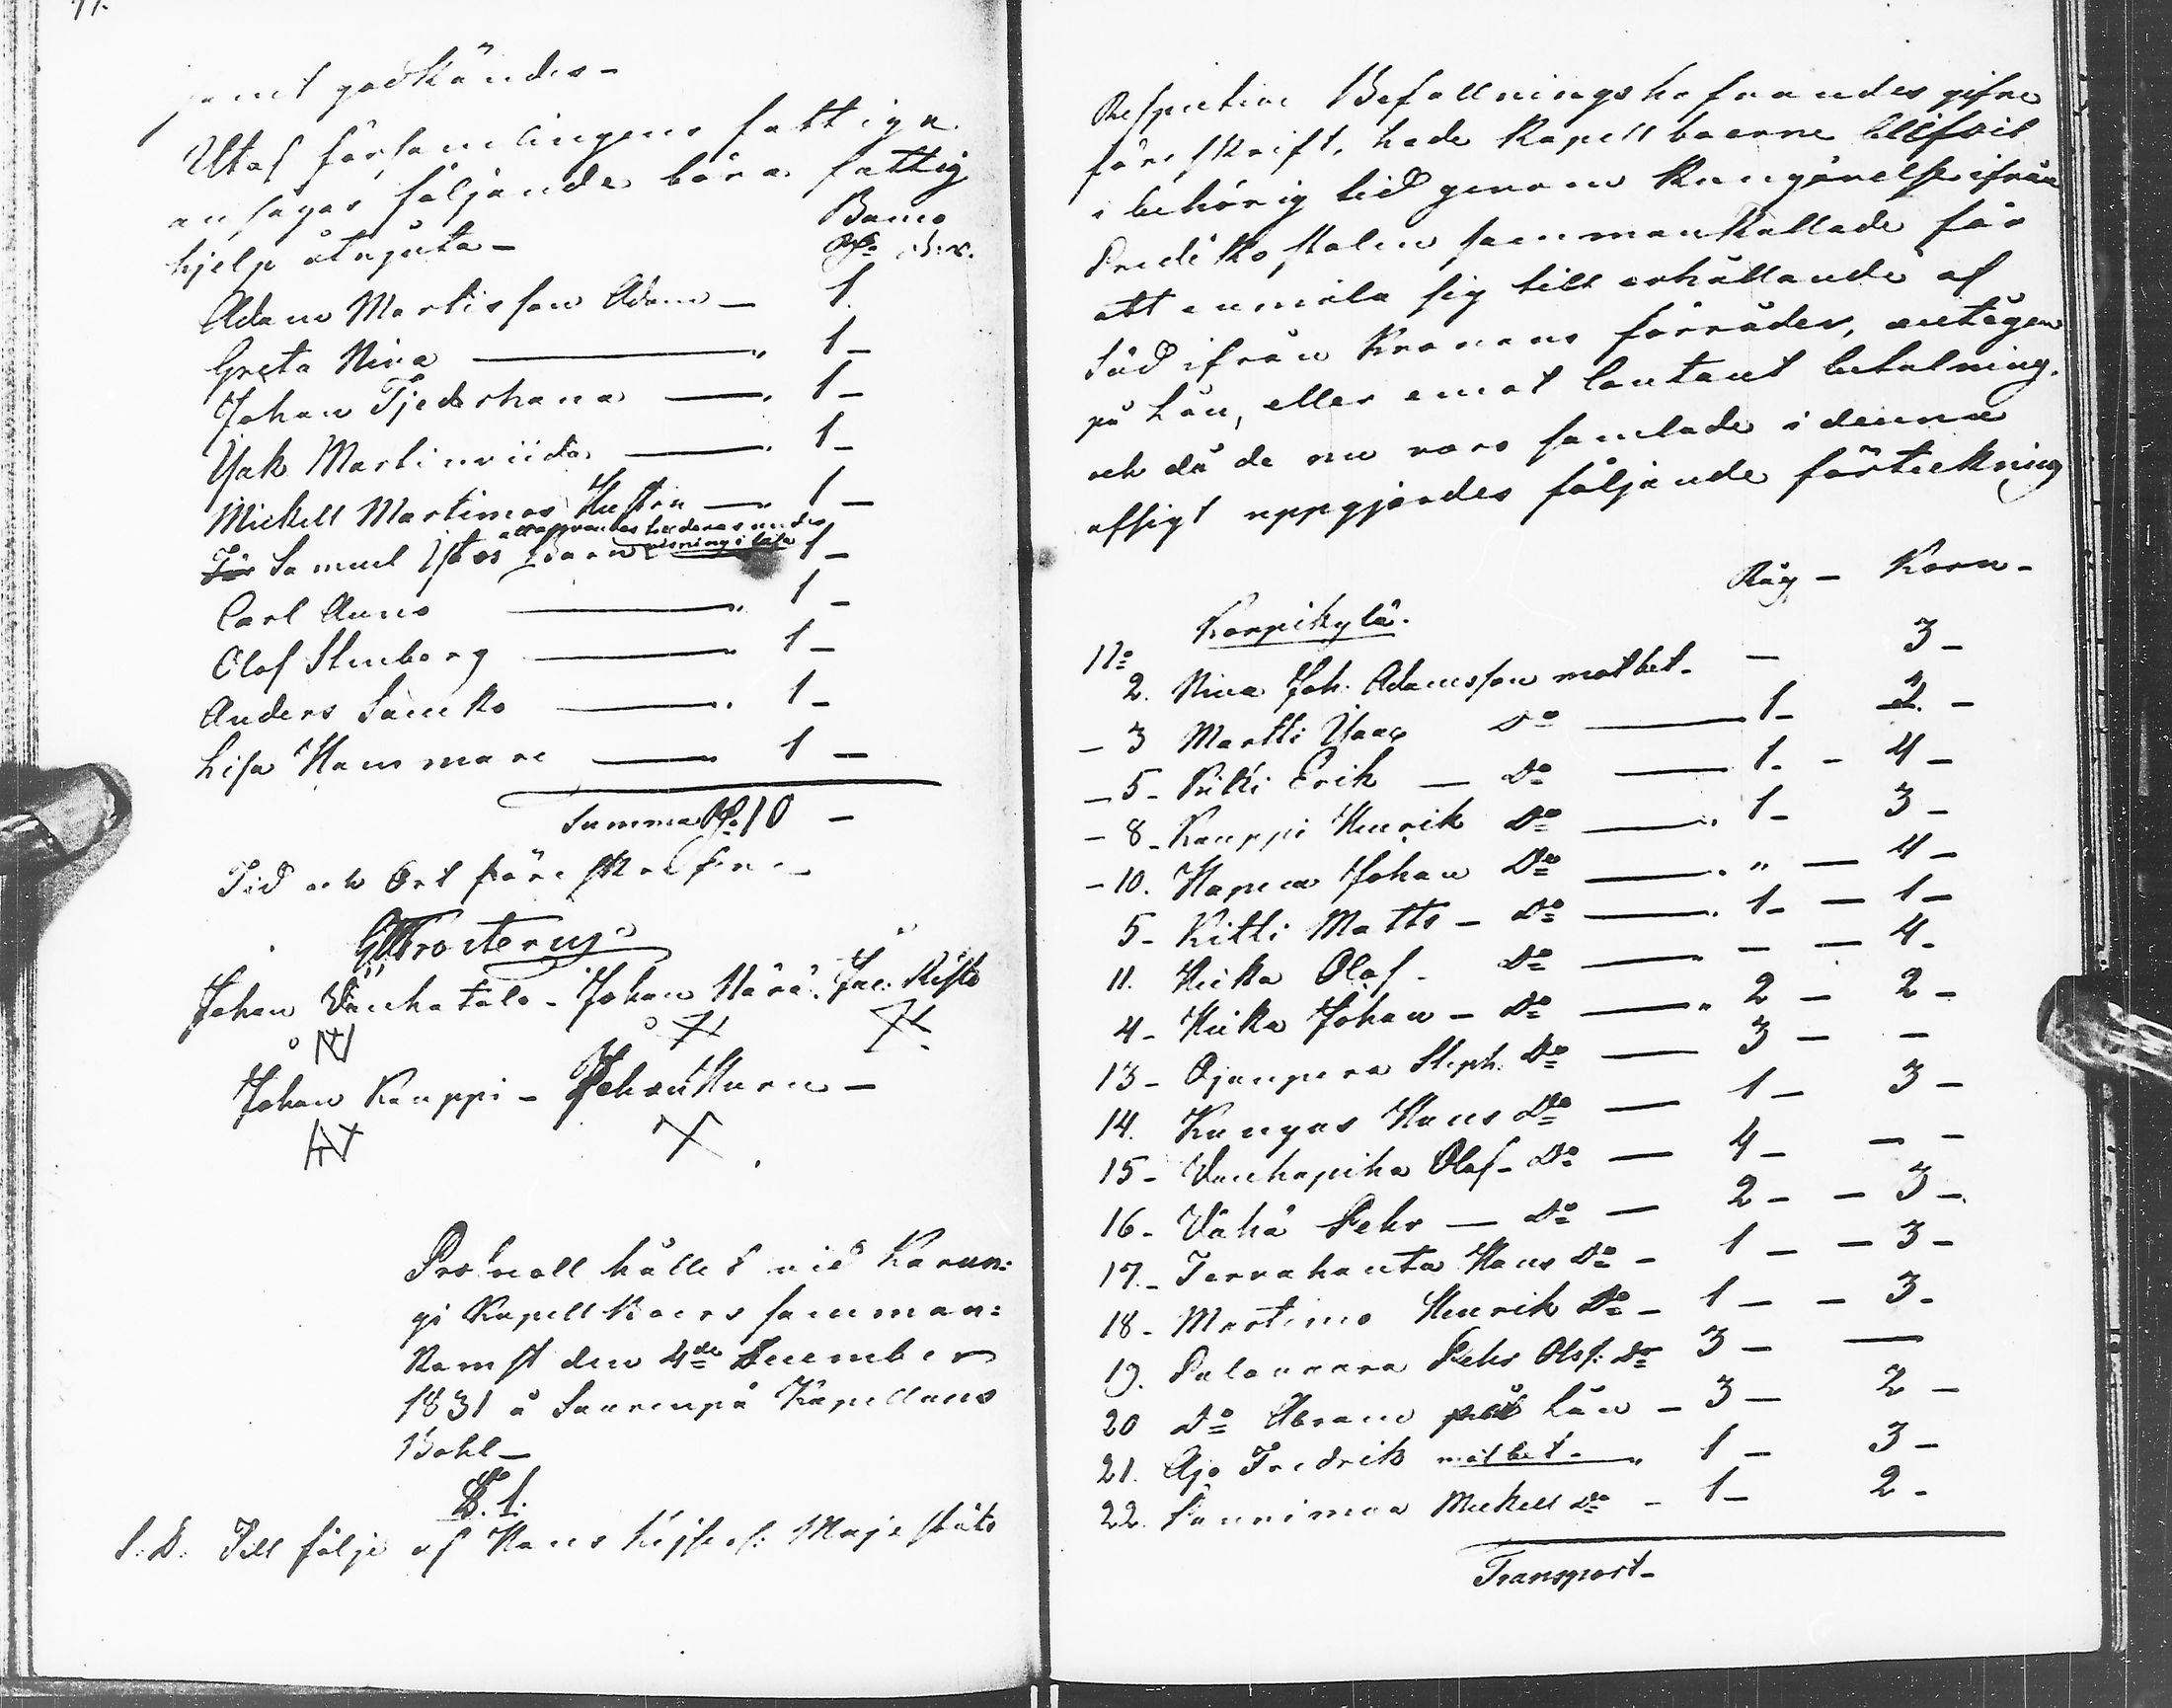 godkändes -
Utaf församlingens fattiga
ansågos följande böra fattig
hjelp åtnjuta -
Banco
Rd. s. x.
Adam Martisson Adam - 1.
Greta Niva 1 -
Johan Tjederhana 1 -
Isak Martinviida 1 -
Mickell Martimos Hustru 1 -
För Samuel Barn 1 -
Carl Auno 1 -
Olof Stenberg 1 -
Anders Samko 1 -
Lisa Hammare 1 -
Summa Rd. 10 -
Tid och Ortföreskrefne -
Johan Vanhatalo - Johan Närä. Jac. Risto
Johan Kauppi - Johan Huru -
Protocoll hållet vid Karun:
gi Kapellboers samman:
komst den 4de December
1831 å Saarenpä Kapellans
Bohl -
§. 1.
S. D. Till följe af Hans Kejserl: Majestäts
Respective Befallningshafvandes gifne
föreskrift, hade Kapellboerne blifvit
i behörig tid genom Kungörelse ifrån
Prediko stolen sammankallade för
att anmäla sig till erhållande af
Säd ifrån Kronans förråder, antigen
på Lån, eller emot Contant betalning.
och då de nu voro samlade i denna
afsigt uppgjordes följande förteckning
Råg - Korn -
No Korpikylä.
2. Niva Joh. Adamsson mot bet. - 3 -
- 3 Martti Isaac Do 1 - 2. -
- 5 - Kitti Erik - Do 1. - 4 -
- 8 - Kauppi Henrik Do 1 - 3 -
- 10. Hapera Johan Do " - 4 -
5 - Kitti Matts - Do 1 - - 1 -
11. Heika Olof - Do - - 4 -
4 - Heika Johan - Do 2 - 2 -
13 - Ojanpera Steph. Do 3 - -
14. Kangas Hans Do 1 - 3 -
15 - Vanhapiha Olof - Do 4 - - -
16 - Vähä Pehr - Do 2 - - 3 -
17 - Tervahauta Hans Do - 1 - - 3 -
18 - Martimo Henrik Do - 1 - - 3 -
19. Palovaara Pehr Olsf: Do 3 - -
20 Do Abram på Lån - 3 - 2 -
21. Ajo Fredrik mot bet - 1 - 3 -
22. Mickell Do - 1 - 2 -
Transport -